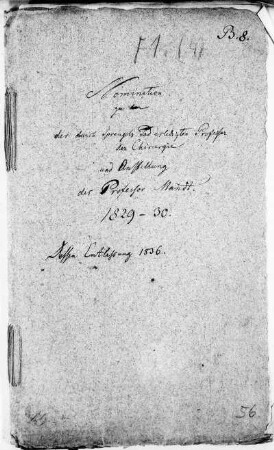 B. 8.
Nomination
zu
der durch Sprengels Tod erledigten Professur
der Chirurgie
und Anstellung
des Professor Mandt.
1829-30.
Dessen Entlassung 1836.
56